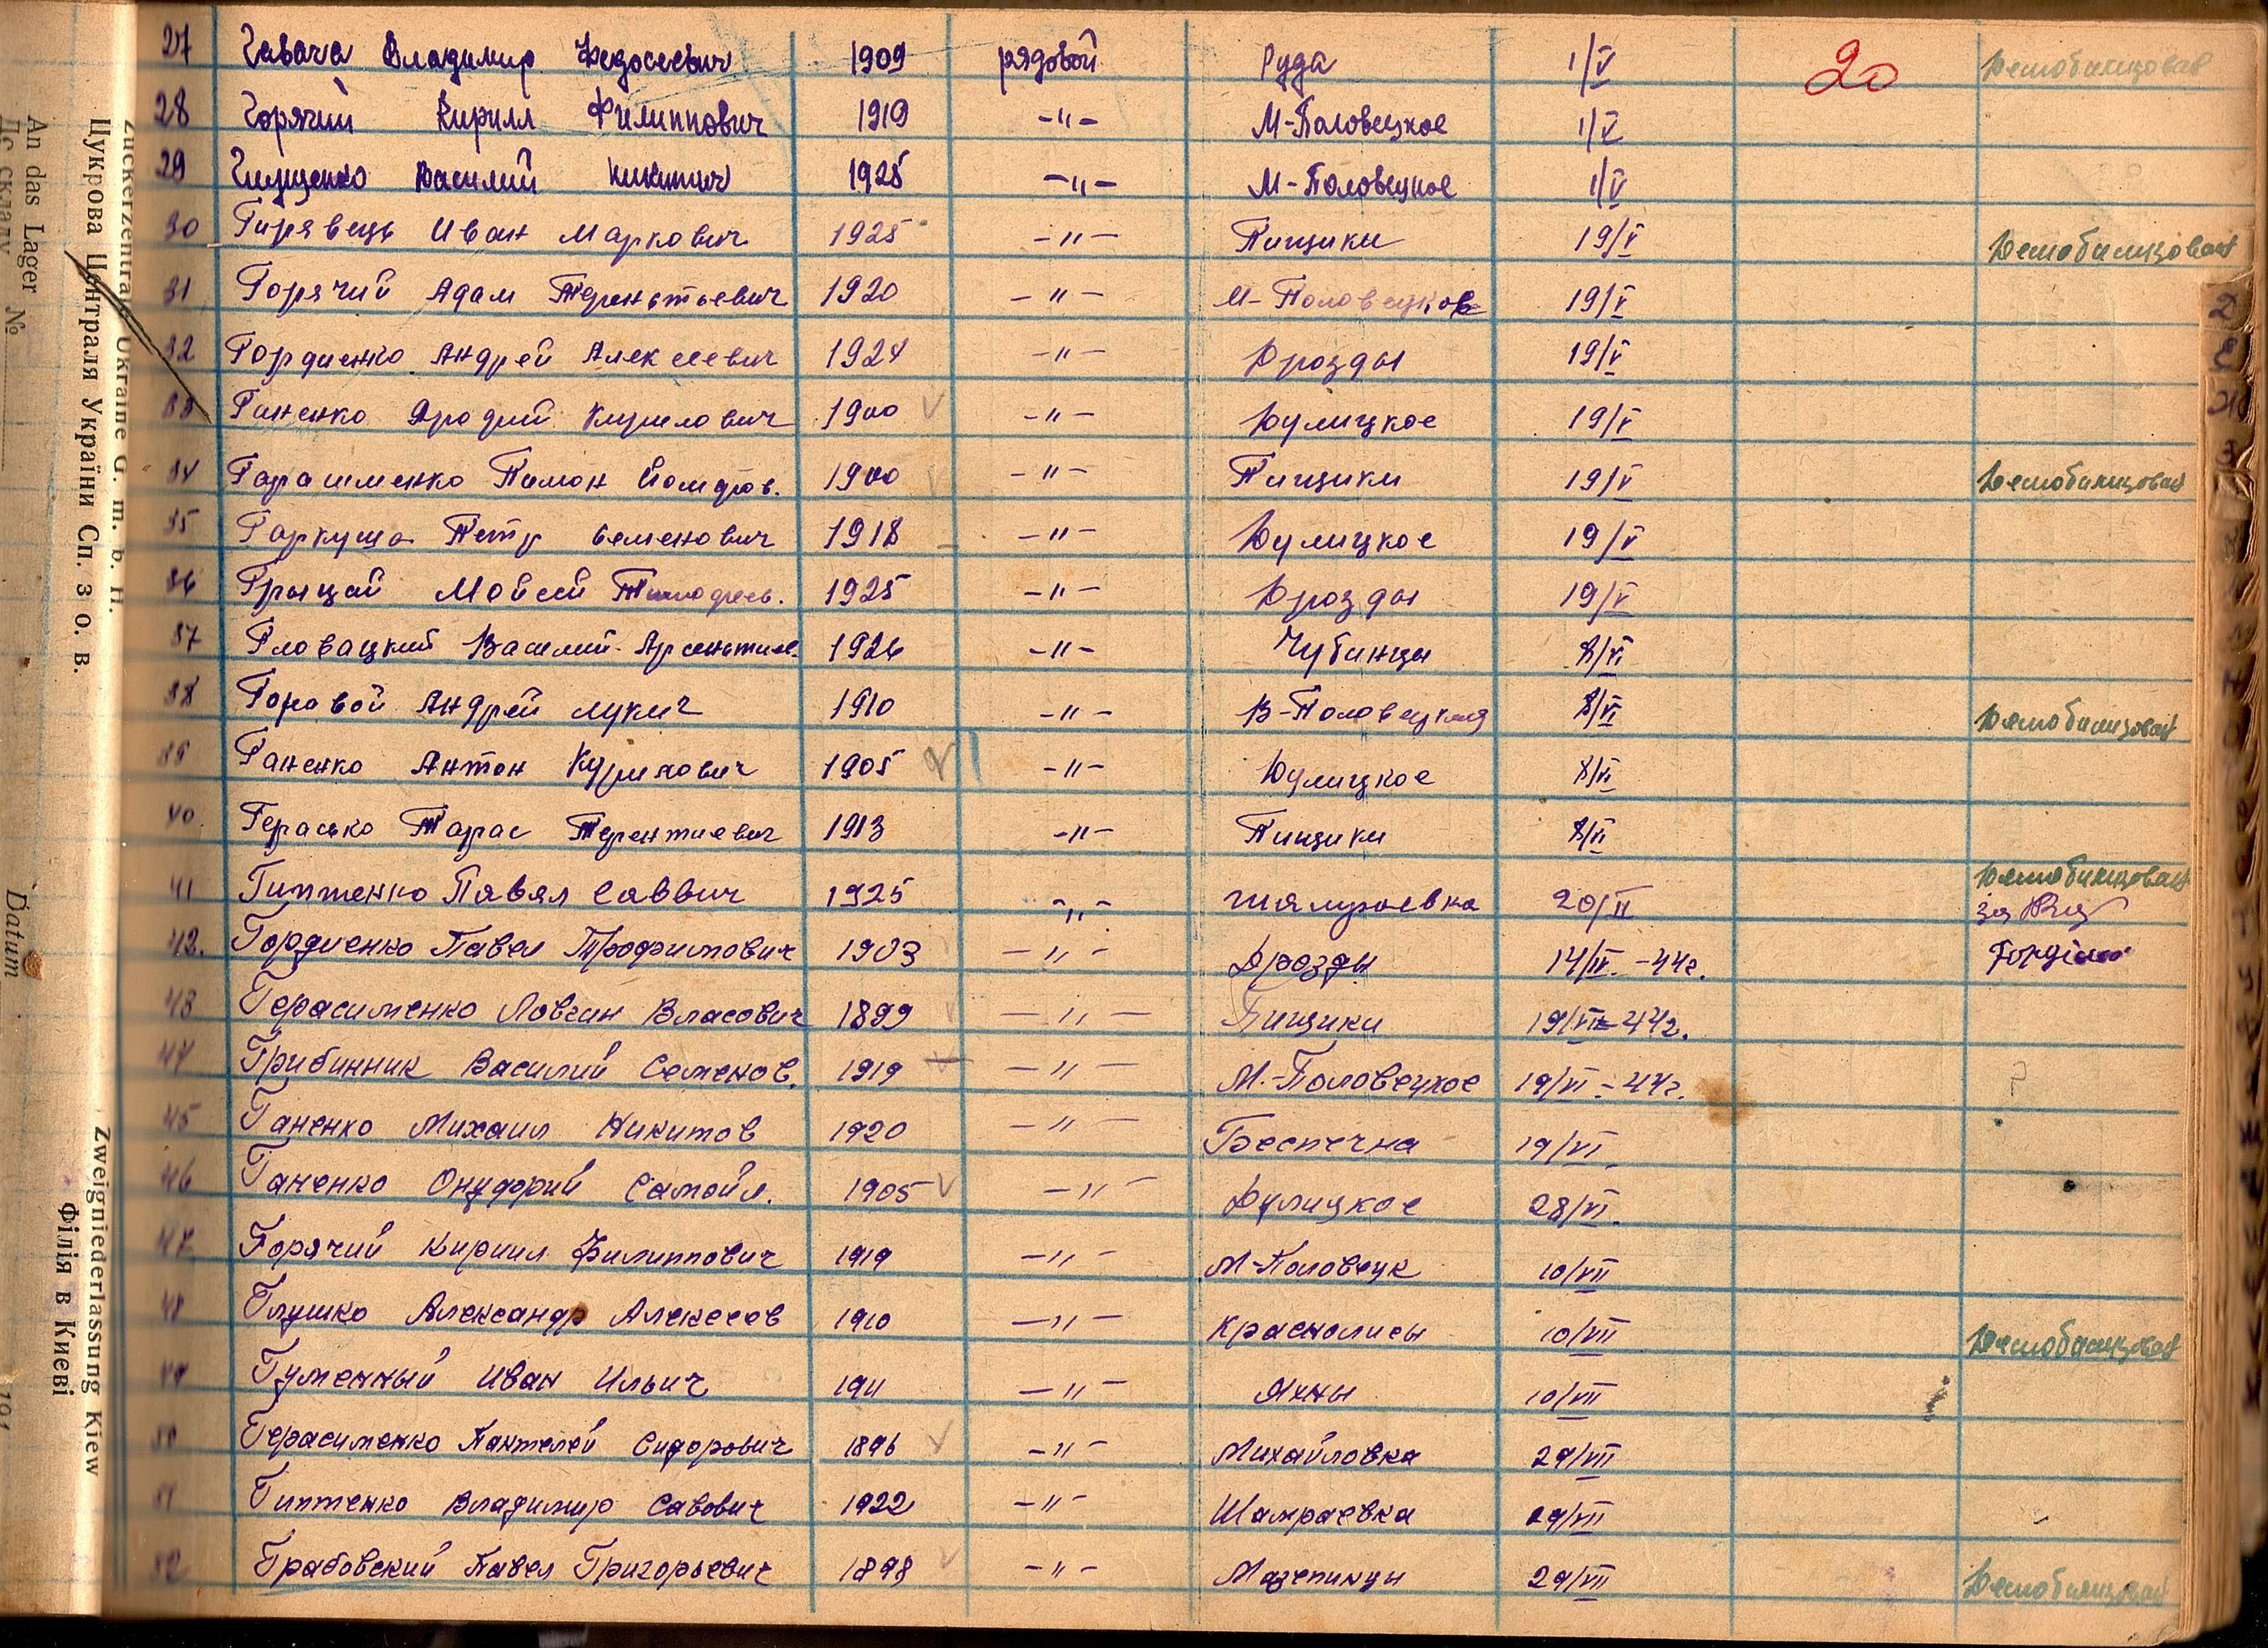 27 Гавача Владимир Федосеевич 1909 рядовой Руда 1/V 20 Демобилизован
28 Горячий Кирилл Филиппович 1919 -"- М-Половецкое 1/V
29 Глущенко Василий Никитич 1925 -"- М-Половецкое 1/V
30 Гирявець Иван Маркович 1925 -"- Пищики 19/V Демобилизован
31 Горячий Адам Терентьевич 1920 -"- М-Половецков 19/V
32 Гордиенко Андрей Алексеевич 1924 -"- Дрозды 19/V
33 Ганенко Кирилович 1900 -"- Дулицкое 19/V
34 Пимон 1900 -"- Пищики 19/V Демобилизован
35 Гаркуша Петр Семенович 1918 -"- Дулицкое 19/V
36 Грыцай Мойсей 1925 -"- Дрозды 19/V
37 Гловацкий Василий 1926 -"- Чубинцы 8/VI
38 Горовой Андрей Лукич 1910 -"- В-Половецкая 8/VI Демобилизован
39 Ганенко Антон Курилович 1905 -"- Дулицкое 8/VI
40. Герасько Тарас Терентиевич 1913 -"- Пищики 8/VI
41 Гиптенко Павял Саввич 1925 -"- 20/II Демобилизован
42. Гордиенко Павел Трофимович 1903 -"- Дрозды 14/IV.-44г.
43 Герасименко Власович 1899 -"- Пищики 19/VI-44г.
44 Грибинник Василий Семенов. 1919 -"- М.-Половецкое 19/VI-44г. ?
45 Ганенко Михаил Никитов 1920 -"- Беспечна 19/VI.
46 Ганенко Онуфрий Самойл. 1905 -"- Дулицкое 28/VI.
47 Горячий Кирилл Филиппович 1919 -"- М-Половецк 10/VII
48 Глушко Александр Алексеев 1910 -"- Краснолисы 10/VII Демобилизован
49 Гуменный Иван Ильич 1911 -"- Яхны 10/VII
50 Герасименко Пантелей Сидорович 1896 -"- Михайловка 29/VII
51 Гиптенко Владимир Савович 1922 -"- Шамраевка 29/VII
52 Грабовский Павел Григорьевич 1898 -"- Мазепинцы 29/VII Демобилизован
Zuckerzentrale Ukraine G. m. b. H.
Цукрова Централя України Сп. з о. в.
Zweigniederlassung Kiew
Філія в Києві
An das Lager №
Datum